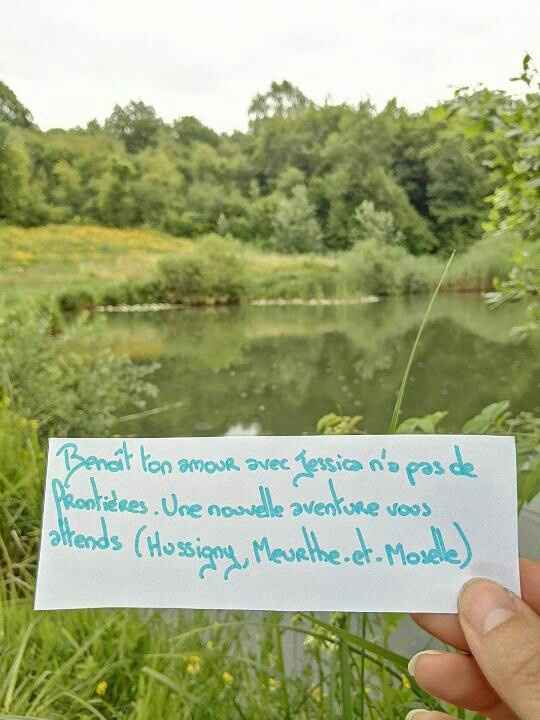 Benoît ton amour avec Jessica n'a pas de
frontières. Une nouvelle aventure vous
attends (Hussigny, Meurthe-et-Moselle)